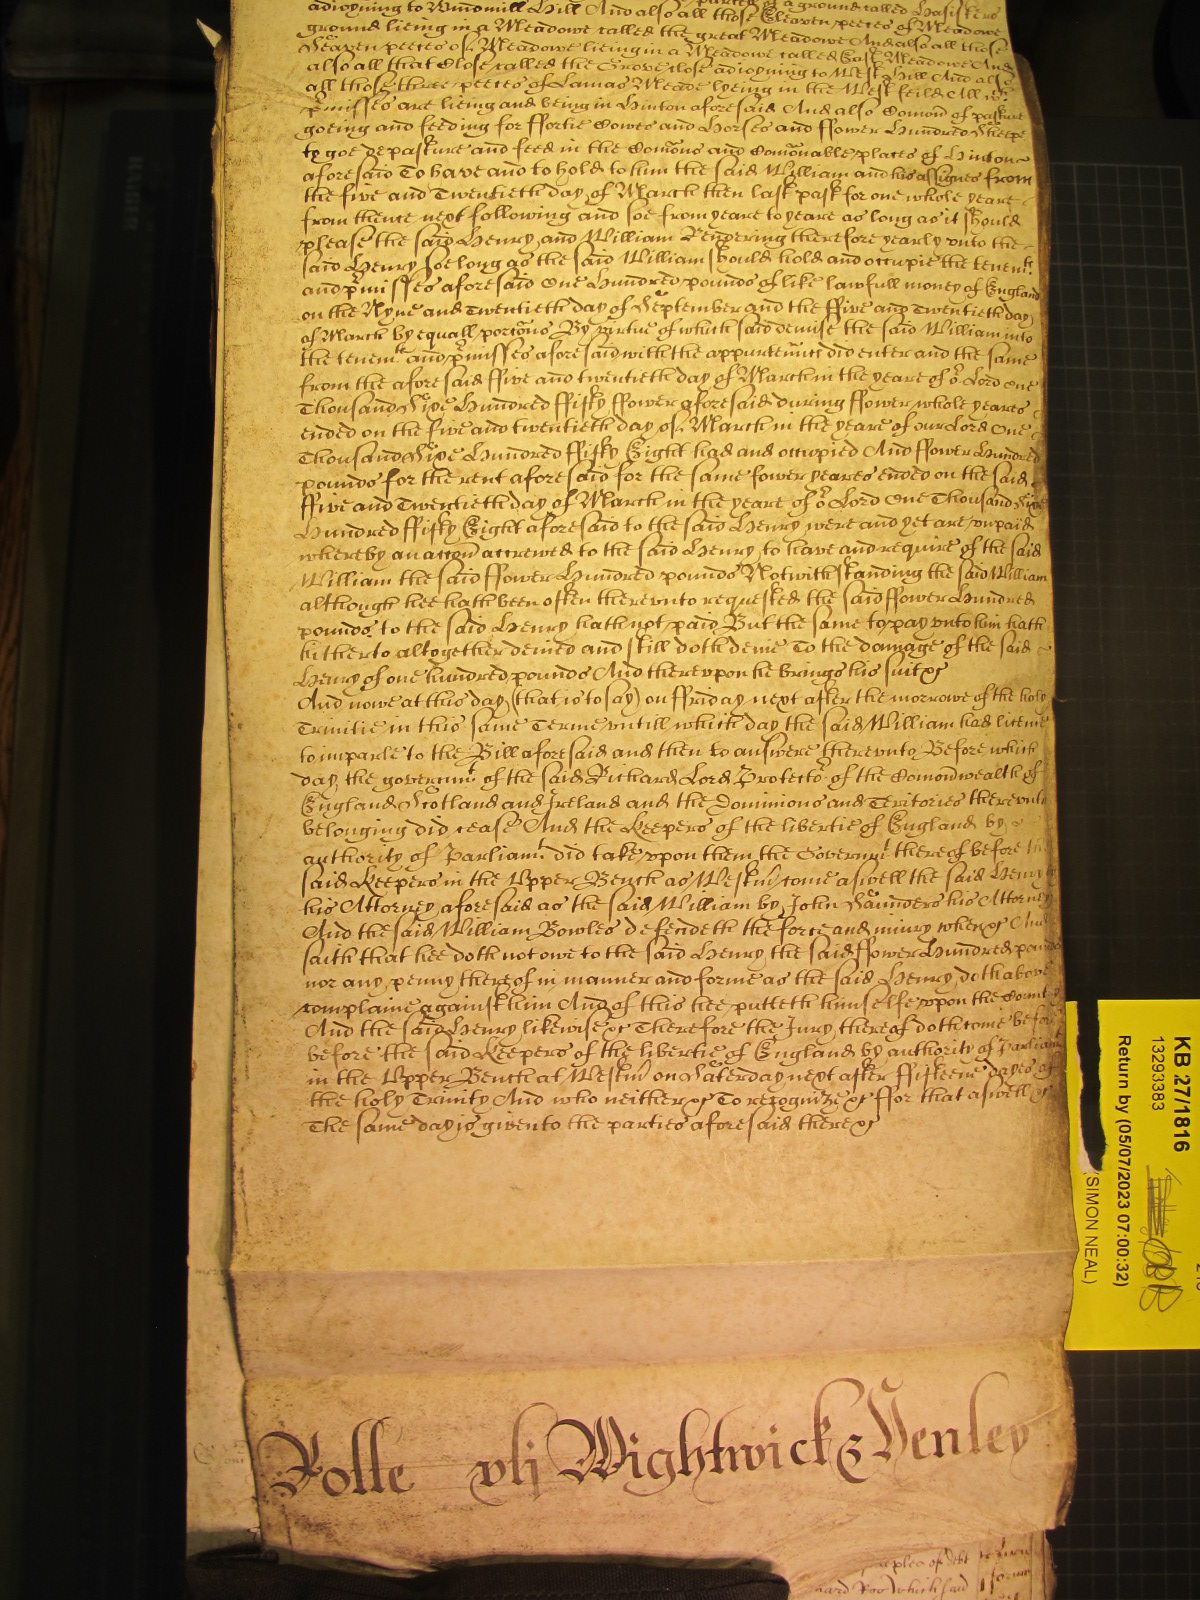 adioyning to Windmill Hill And also all those Eleaven peeces of Meadowe
ground lieing in a Meadowe called the great Meadowe And also all those
Seaven peeces of Meadowe lieing in a Meadowe called East Meadowe And
also all that Close called the Grove close adioyning to West Hill And also
all those three peeces of Lamas Meade lyeing in the West feild All wch
pmisses are lieing and being in Hinton aforesaid And also Comon of pasture
goeing and feeding for ffortie Cowes and Horses and ffower Hundred Sheepe
to goe depasture and feed in the Comons and Comonable places of Hinton
aforesaid To have and to hold to him the said William and his assignes from
the five and Twentieth day of March then last past for one whole yeare
from thence next following and soe from yeare to yeare as long as it should
please the said Henry and William Rendering therefore yearly vnto the
said Henry soe long as the said William should hold and occupie the tenemt.
and pmisses aforesaid One Hundred pounds of like lawfull money of England
on the Nyne and Twentieth day of September and the ffive and Twentieth day
of March by equall porcons By virtue of which said demise the said William into
the tenemt and pmisses aforesaid with the appurtenncs did enter and the same
from the aforesaid ffive and twentieth day of March in the yeare of or Lord One
Thousand Sixe Hundred ffifty ffower aforesaid during ffower whole yeares
ended on the five and twentieth day of March in the yeare of our Lord One
Thousand Sixe Hundred ffifty Eight had and occupied And ffower Hundred
pounds for the rent aforesaid for the same fower yeares ended on the said
ffive and Twentieth day of March in the yeare of or Lord One Thousand Sixe
Hundred ffifty Eight aforesaid to the said Henry were and yet are vnpaid
whereby an accon accrewed to the said Henry to have and require of the said
William the said ffower Hundred pounds Notwithstanding the said William
although hee hath been often therevnto requested the said ffower Hundred
pounds to the said Henry hath not paid But the same to pay vnto him hath
hitherto altogether denied and still doth denie To the damage of the said
Henry of one hundred pounds And therevpon he brings his suit &c
And nowe at this day (that is to say) on ffriday next after the morrowe of the holy
Trinitie in this same Terme vntill which day the said William had licence
to imparle to the Bill aforesaid and then to answere therevnto Before which
day the governmt of the said Richard Lord Protector of the Comonwealth of
England Scotland and Ireland and the Dominions and Territories therevnto
belonging did cease And the Keepers of the libertie of England by
authority of Parliamt did take vpon them the Governmt thereof before the
said Keepers in the Vpper Bench at Westm come aswell the said Henry by
his Attorney aforesaid as the said William by John Saunders his Attorney
And the said William Bowles defendeth the force and iniury when &c And
saith that hee doth not owe to the said Henry the said ffower Hundred pounds
nor any penny thereof in manner and forme as the said Henry doth above
complaine against him And of this hee putteth himselfe vpon the Countrey
And the said Henry likewise &c Therefore the Jury thereof doth come before
before the said Keepers of the libertie of England by authority of Parliamt
in the Vpper Bench at Westm on Saterday next after ffifteene dayes of
the holy Trinity And who neither &c To recognize &c ffor that aswell &c
The same day is given to the parties aforesaid there &c
Rolle vlj Wightwick & Henley
plea of debt
which said
KB 27/1816
13293383
Return by (05/07/2023 07:00:32)
(SIMON NEAL)